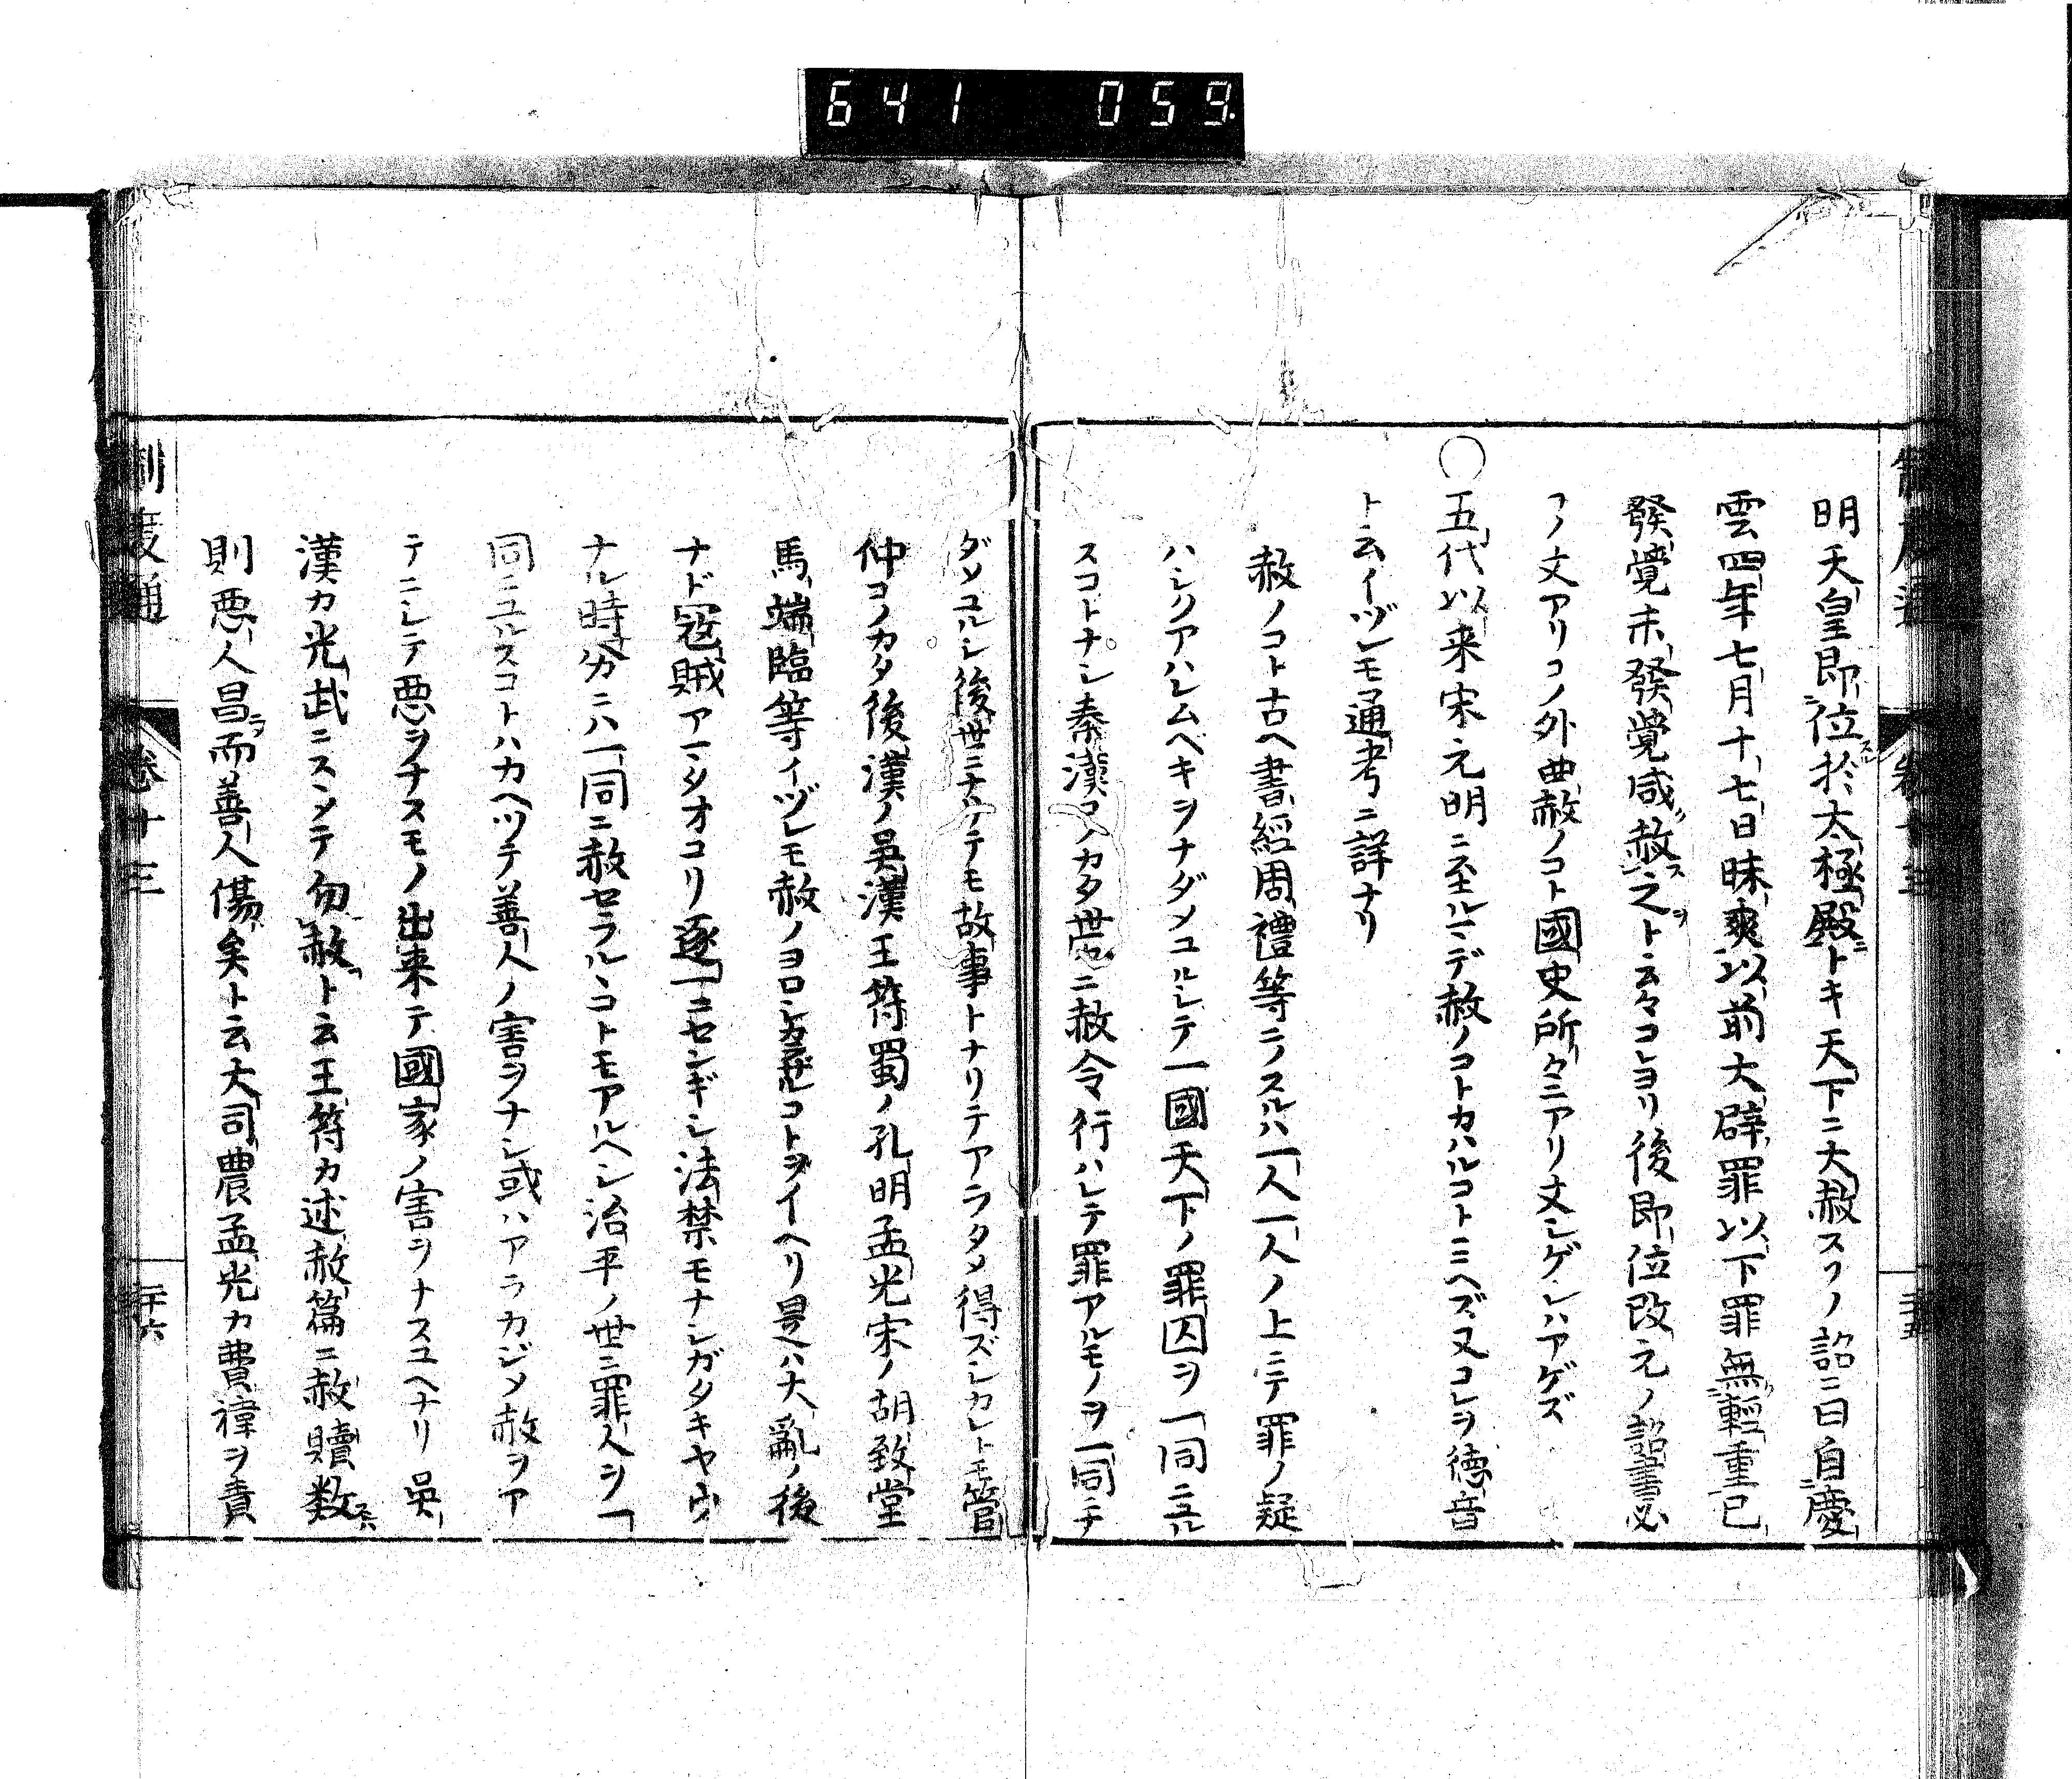 641 059
制度通 卷十三 二十五
明天皇即位於太極殿トキ天下ニ大赦スソノ詔ニ曰自慶
雲四年七月十七日昧爽以前大辟罪以下罪無輕重已
發覺未發覺咸赦之ト云々コレヨリ後即位改元ノ詔書必
コノ文アリコノ外曲赦ノコト國史所々ニアリ文シゲレハアゲズ
○五代以来宋元明ニ至ルマデ赦ノコトカハルコトミヘズ又コレヲ德音
ト云イヅレモ通考ニ詳ナリ
赦ノコト古ヘ書經周禮等ニノスルハ一人一人ノ上ニテ罪ノ疑
ハシクアハレムベキヲナダメユルシテ一國天下ノ罪囚ヲ一同ニユル
スコトナシ秦漢コノカタ世々ニ赦令行ハレテ罪アルモノヲ一同ニナ
ダメユルシ後世ニナリテモ故事トナリテアラタメ得ズシカレトモ管
仲コノカタ後漢ノ吳漢王符蜀ノ孔明孟光宋ノ胡致堂
馬端臨等イヅレモ赦ノヨロシカラザルコトヲイヘリ是ハ大亂ノ後
ナド冦賊アマタオコリ逐一ニセンギシ法禁モナシガタキヤウ
ナル時分ニハ一同ニ赦セラルヽコトモアルヘシ治平ノ世ニ罪人ヲ一
同ニユルスコトハカヘツテ善人ノ害ヲナシ或ハアラカジメ赦ヲア
テニシテ惡ヲナスモノ出来テ國家ノ害ヲナスユヘナリ吳
漢カ光武ニスヽメテ勿赦ト云王符カ述赦篇ニ赦贖数スレハ
則惡人昌而善人傷矣ト云大司農孟光カ費禕ヲ責
制度通 卷十三 二十六